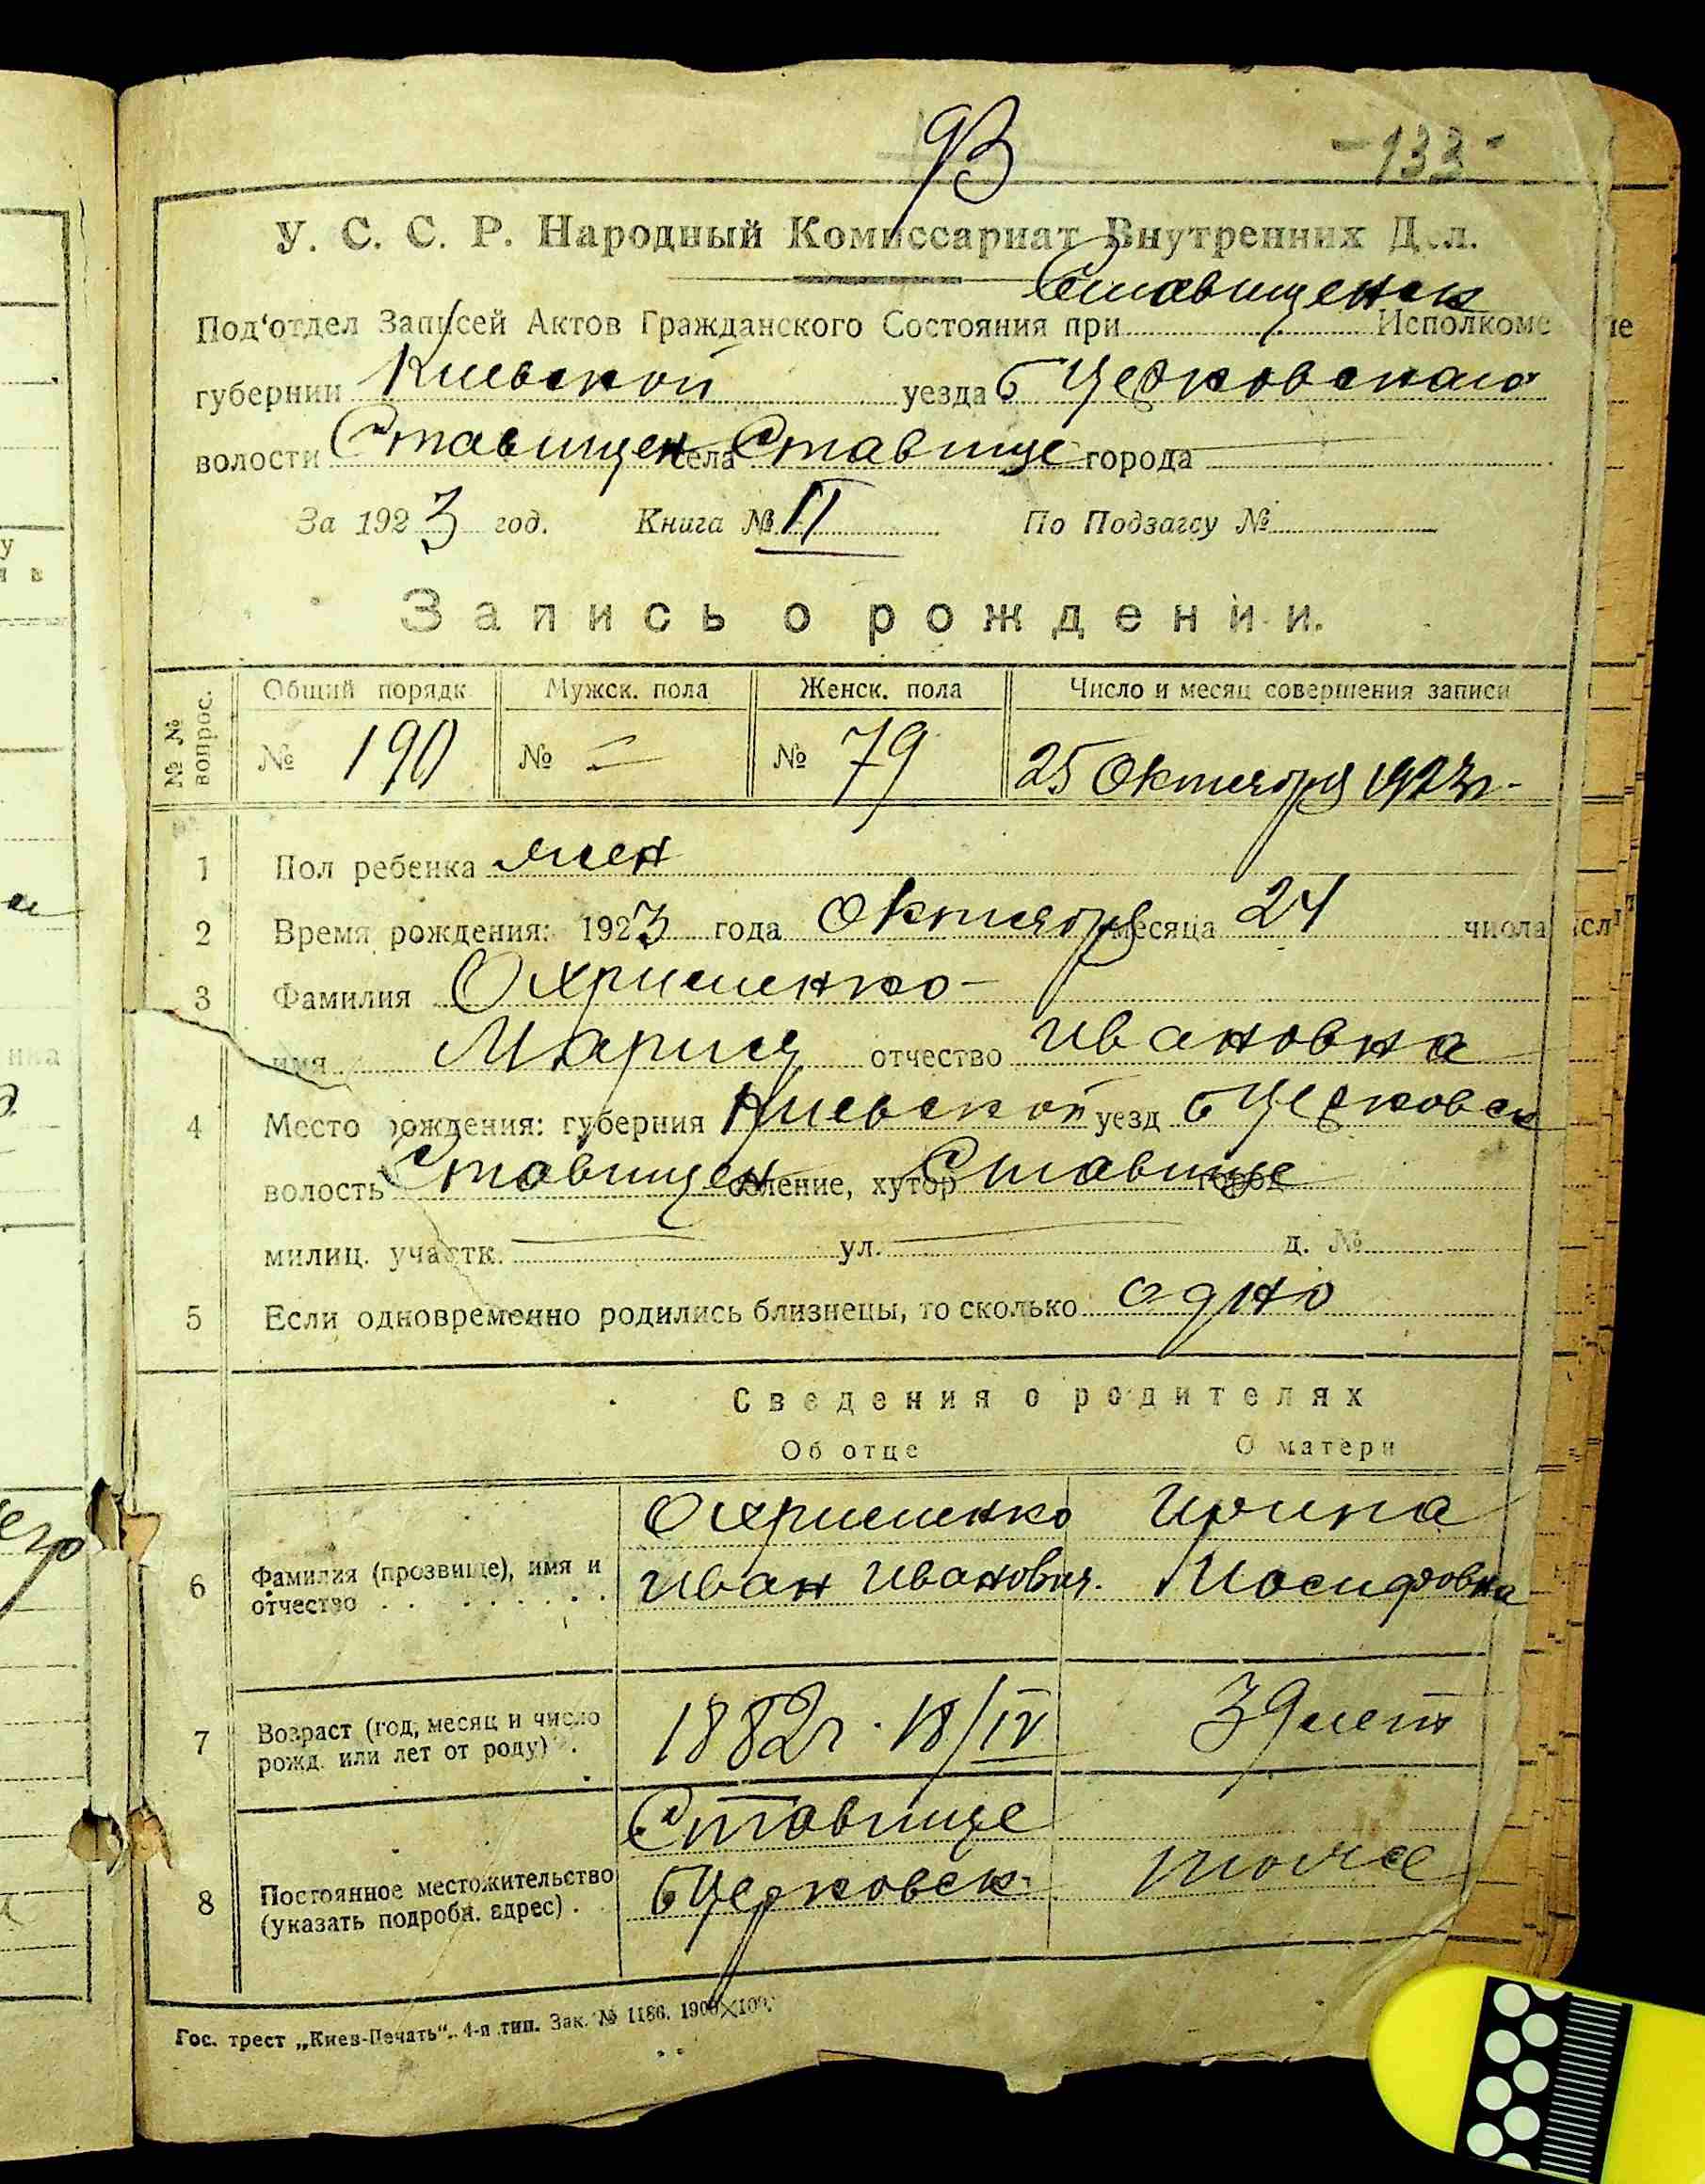 93
-133-
У. С. С. Р. Народный Комиссариат Внутренних Дел.
Под'отдел Записей Актов Гражданского Состояния при Ставищенск Исполкоме
губернии Киевской уезда б Церковского
волости Ставищен села Ставище города
За 1923 год. Книга № II По Подзагсу №
Запись о рождении.
№ № вопрос. Общий порядк Мужск. пола Женск. пола Число и месяц совершения записи
№ 190 № = № 79 25 Октября 1923г.
1 Пол ребенка жен
2 Время рождения: 1923 года Октября месяца 24 числа
3 Фамилия Охрименко
имя Мария отчество Ивановна
4 Место рождения: губерния Киевской уезд б Церковск
волость Ставищен селение, хутор Ставище город
милиц. участк. ул. д. №
5 Если одновременно родились близнецы, то сколько одно
Сведения о родителях
Об отце О матери
Охрименко Ирина
6 Фамилия (прозвище), имя и отчество Иван Иванович. Иосифовна
7 Возраст (год, месяц и число рожд. или лет от роду) 1882г. 18/IV 39 лет
Ставище
8 Постоянное местожительство (указать подробн. адрес) б Церковск. тоже
Гос. трест „Киев-Печать". 4-я тип. Зак. № 1186. 1900×100.